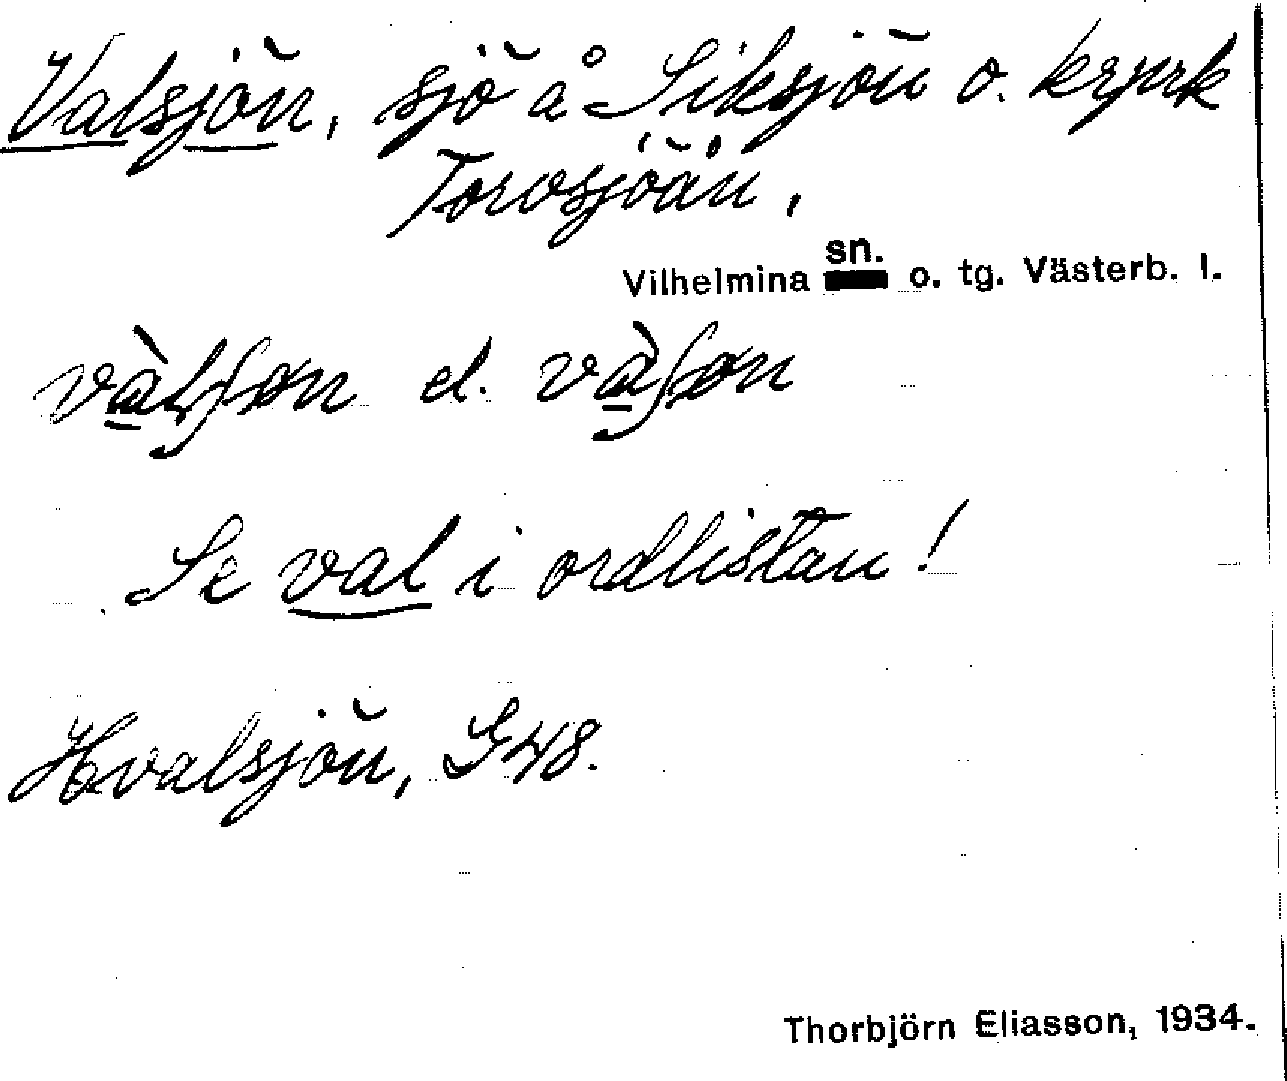 Valsjön, sjö å Siksjön o. kryrk
Torvsjöån,
Vilhelmina sn. o. tg. Västerb. l.
el.
Se val i ordlistan!
Hvalsjön, G48.
Thorbjörn Eliasson, 1934.